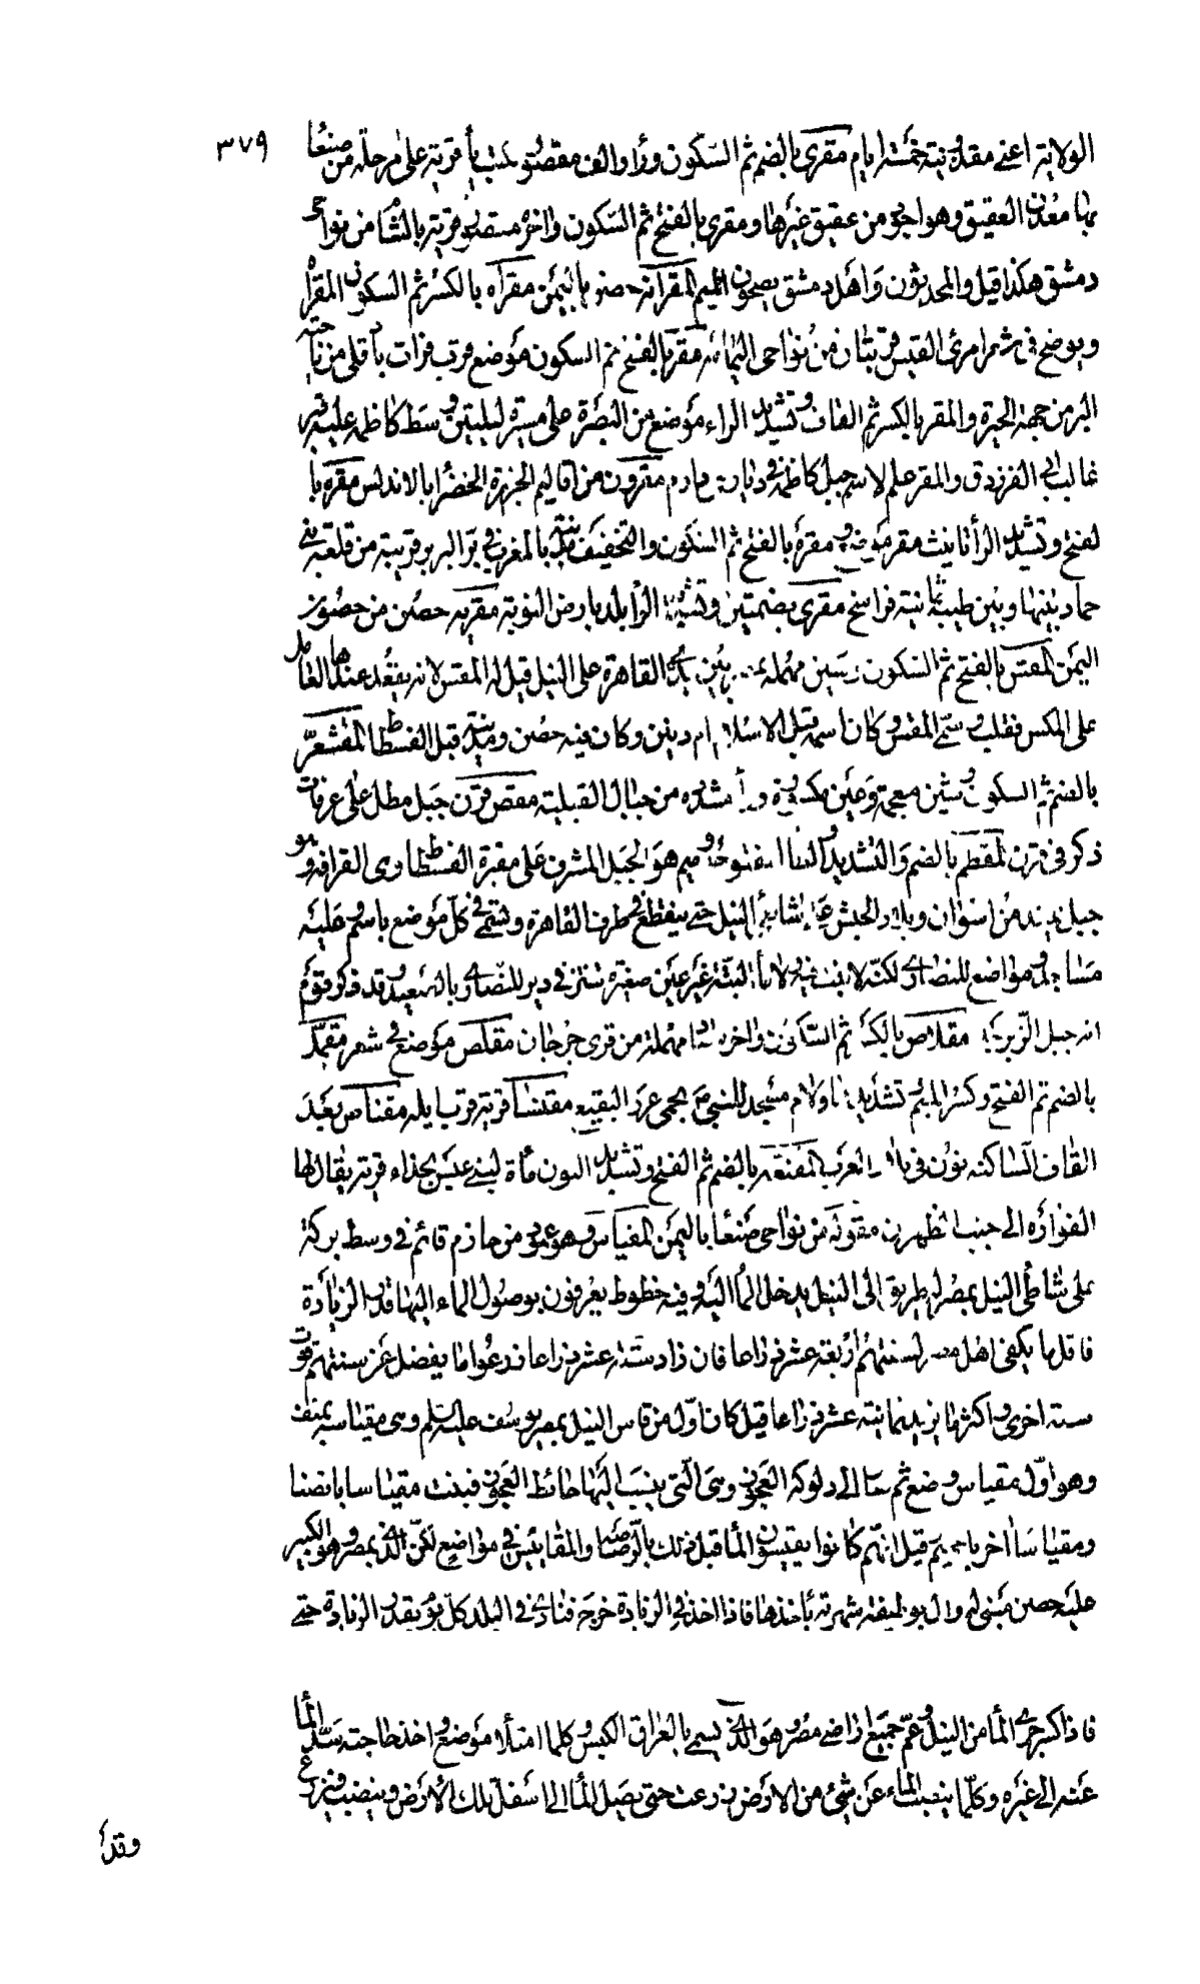 ٣٧٩
الولاية اعني مقدونية خمسة ايام مقرى بالضم ثم السكون وراء والف مقصورة تكتب ياء قرية على مرحلة من صنعا
بها معدن العقيق وهو اجود من عقيق غيرها ومقرى بالفتح ثم السكون واخره مقصور قرية بالشام من نواحي
دمشق هكذا قيل والمحدثون واهل دمشق يضمون الميم المقرانة حصن باليمن مقراه بالكسر ثم السكون المقراة
وتوضح في شعر امرئ القيس قريتان من نواحي اليمامة مقر بالفتح ثم السكون موضع قرب فرات بادقلى من ناحية
البر من جهة الحيرة والمقر بالكسر ثم الفتح وتشديد الراء موضع من البصرة على مسيرة ليلتين وسط كاظمة عليه قبر
غالب ابي الفرزدق والمقر علم لاسم جبل كاظمة في ديار بني دارم مقرون من اقاليم الجزيرة الخضرا بالاندلس مقره با
لفتح وتشديد الرا تانيث مقر موضع ومقرة بالفتح ثم السكون والتخفيف مدينة بالمغرب في بر البربر قريبة من قلعة بني
حماد بينها وبين طبنة ثمانية فراسخ مقرى بضمتين وتشديد الرا بلد بارض النوبة مقريه حصن من حصون
اليمن المقس بالفتح ثم السكون وسين مهملة بين يدي القاهرة على النيل قيل له المقس لانه يقعد عندها العامل
على المكس فقلب وسمي المقس وكان اسمه قبل الاسلام ام دنين وكان فيه حصن ومدينة قبل الفسطاط المقشعر
بالضم ثم السكون وشين معجمة وعين مكسورة وراء مشدده من جبال القبلية مقص قرن جبل مطل على عرفات
ذكر في قرن المقطم بالضم والتشديد والطاء المفتوحة وميم هو الجبل المشرف على مقبرة الفسطاط وى القرافة وهو
جبل يمتد من اسوان وبلاد الحبش على شاطئ النيل حتى ينقطع في طرف القاهرة ويسمى في كل موضع باسم وعليه
مساجد ومواضع للنصارى لكنه لا ينبت فيه ولا ماء البتة غير عين صغيرة تنز في دير للنصارى بالصعيد وقد ذكر قوم
انه جبل الزبرجد مقلاص بالكسر ثم السكون واخره صاد مهملة من قرى جرجان مقلص موضع في شعر مقمل
بالضم ثم الفتح وكسر الميم وتشديدها ولام مسجد للنبي ص بحمى غرز البقيع مقنا قرية قرب ايله مقناص بعد
القاف الساكنه نون في بلاد العرب المقنعه بالضم ثم الفتح وتشديد النون ماءة لبني عبس بحذاء قرية يقال لها
الفواره الى جنب الظهران مقونه من نواحي صنعا باليمن المقياس وهو عمود من رخام قائم في وسط بركة
على شاطئ النيل بمصر له طريق الى النيل يدخل الماء اليه وفيه خطوط يعرفون بوصول الماء اليها قدر الزيادة
فاقل ما يكفي اهل مصر لسنتهم اربعة عشر ذراعا فان زاد ستة عشر ذراعا زرعوا ما يفضل عن سنتهم قوت
سنة اخرى واكثر ما يزيد ثمانية عشر ذراعا قيل كان اول من قاس النيل بمصر يوسف عليه السلم وبنى مقياسه بمنف
وهو اول مقياس وضع ثم دلوكه العجوز وهي التي ينسب اليها حائط العجوز فبنت مقياسا بانصنا
ومقياسا اخر باخميم قيل انهم كانوا يقيسون الماء قبل ذلك بالرصاصة والمقاييس في مواضع لكن الذي بمصر وهو الكبير
عليه حصن مبني له وال بوظيفة شهرية ياخذها فاذا اخذ في الزيادة خرج فنادى في البلد كل يوم بقدر الزيادة حتى
فاذا كبر جرى الماء من النيل وعم جميع اراضي مصر وهو الذي يسمى بالعراق الكبس وكلما امتلا موضع واخذ حاجته سد الماء
عنه الى غيره وكلما ينضب الماء عن شيء من الارض زرعت حتى يصل الماء الى اسفل تلك الارض وينضب فيزرع
وقد